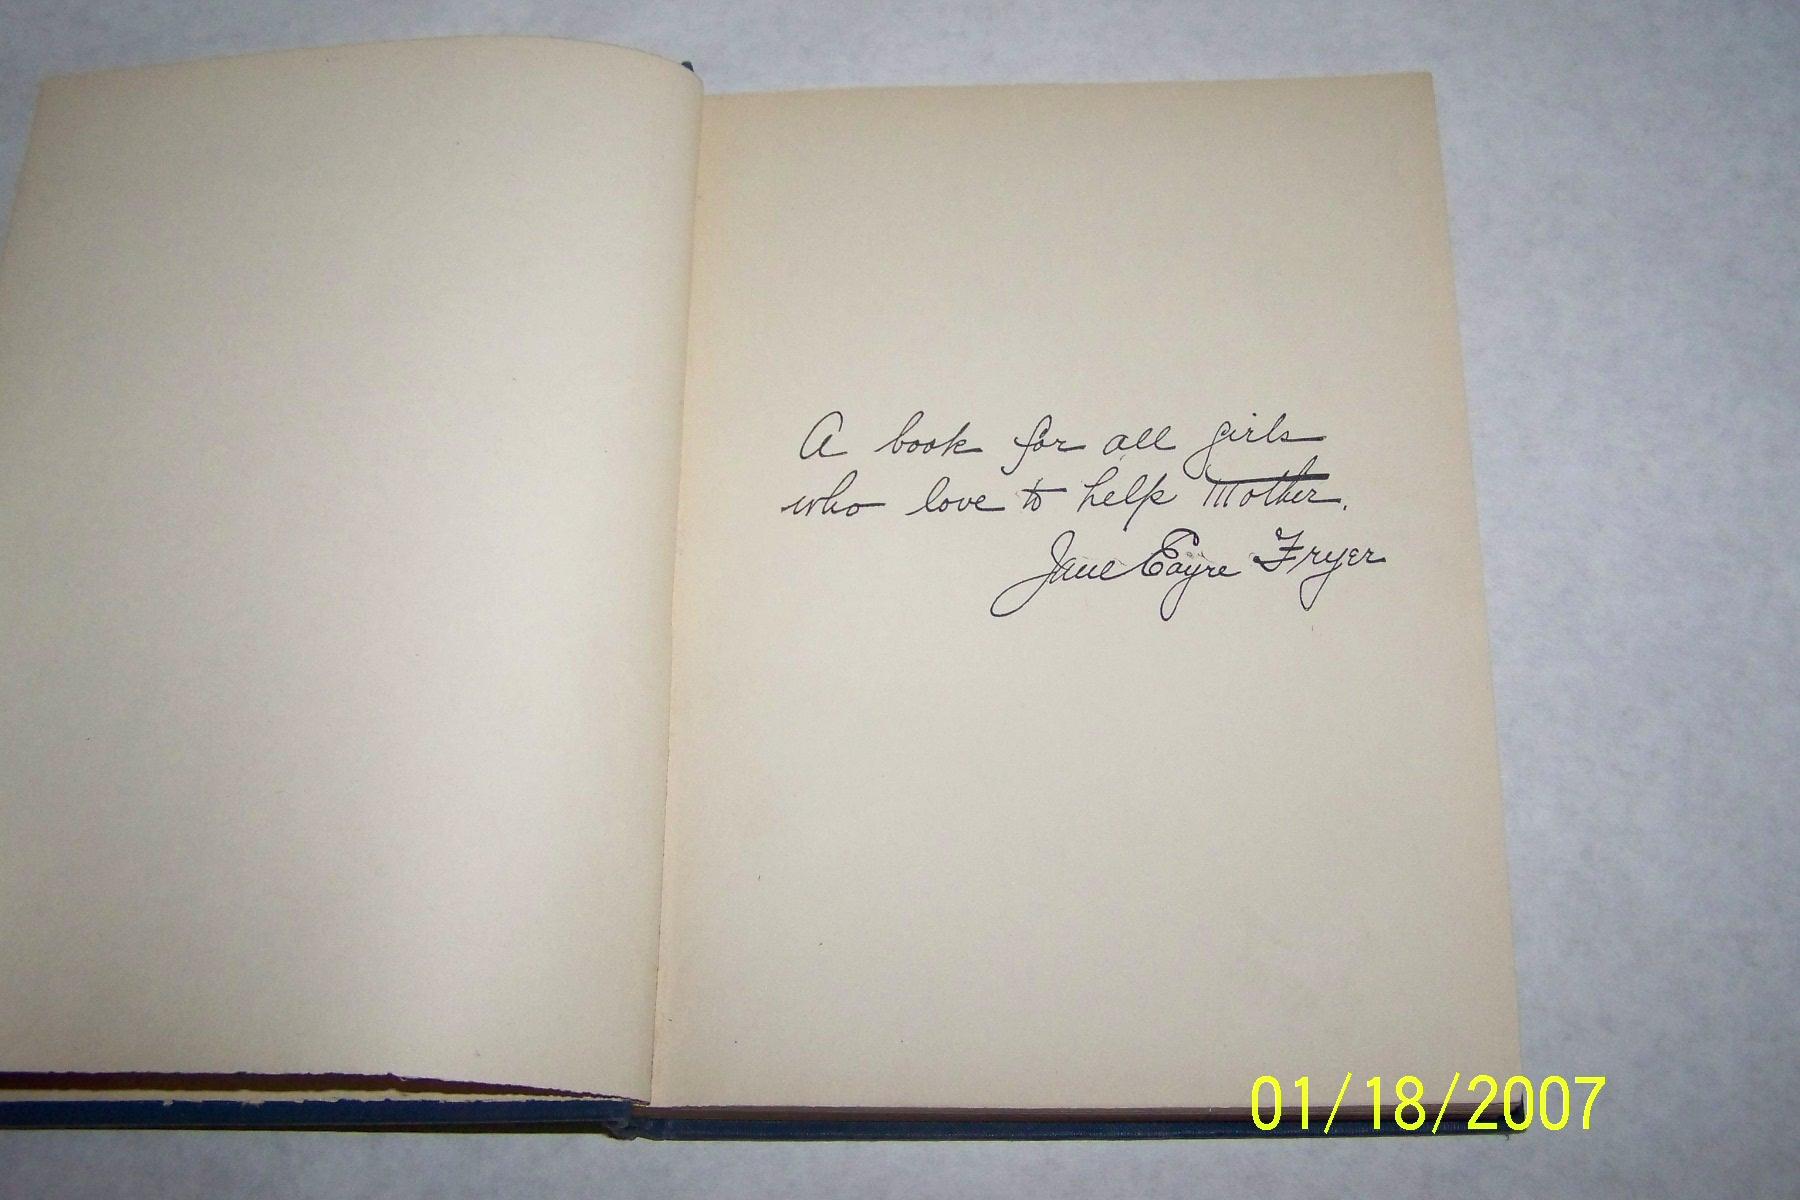 A book for all girls
who love to help Mother.
Jane Eayre Fryer
01/18/2007